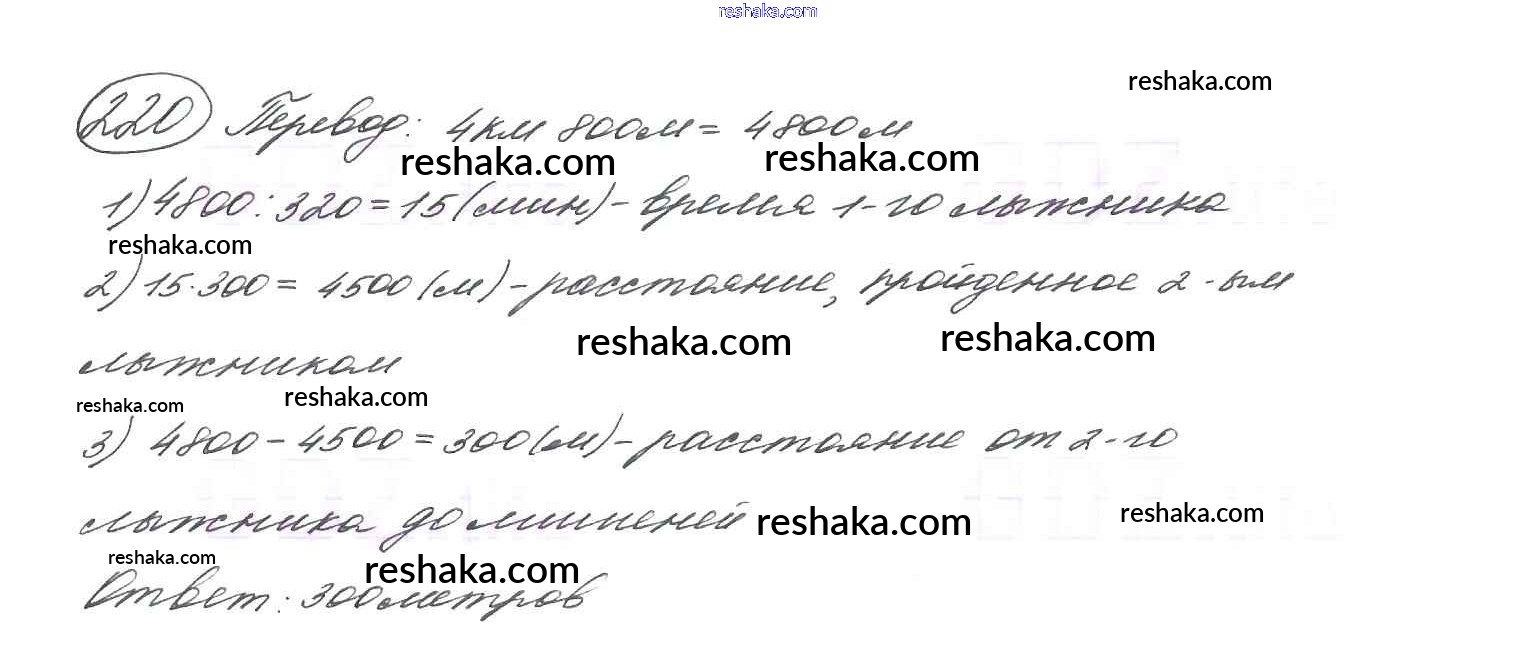 reshaka.com
reshaka.com
220 Перевод: 4км 800м = 4800м
reshaka.com reshaka.com
1) 4800 : 320 = 15 (мин) - время 1-го лыжника
reshaka.com
2) 15 · 300 = 4500 (м) - расстояние, пройденное 2-ым
reshaka.com reshaka.com
лыжником
reshaka.com reshaka.com
3) 4800 - 4500 = 300 (м) - расстояние от 2-го
лыжника до мишеней reshaka.com reshaka.com
reshaka.com reshaka.com
Ответ: 300 метров